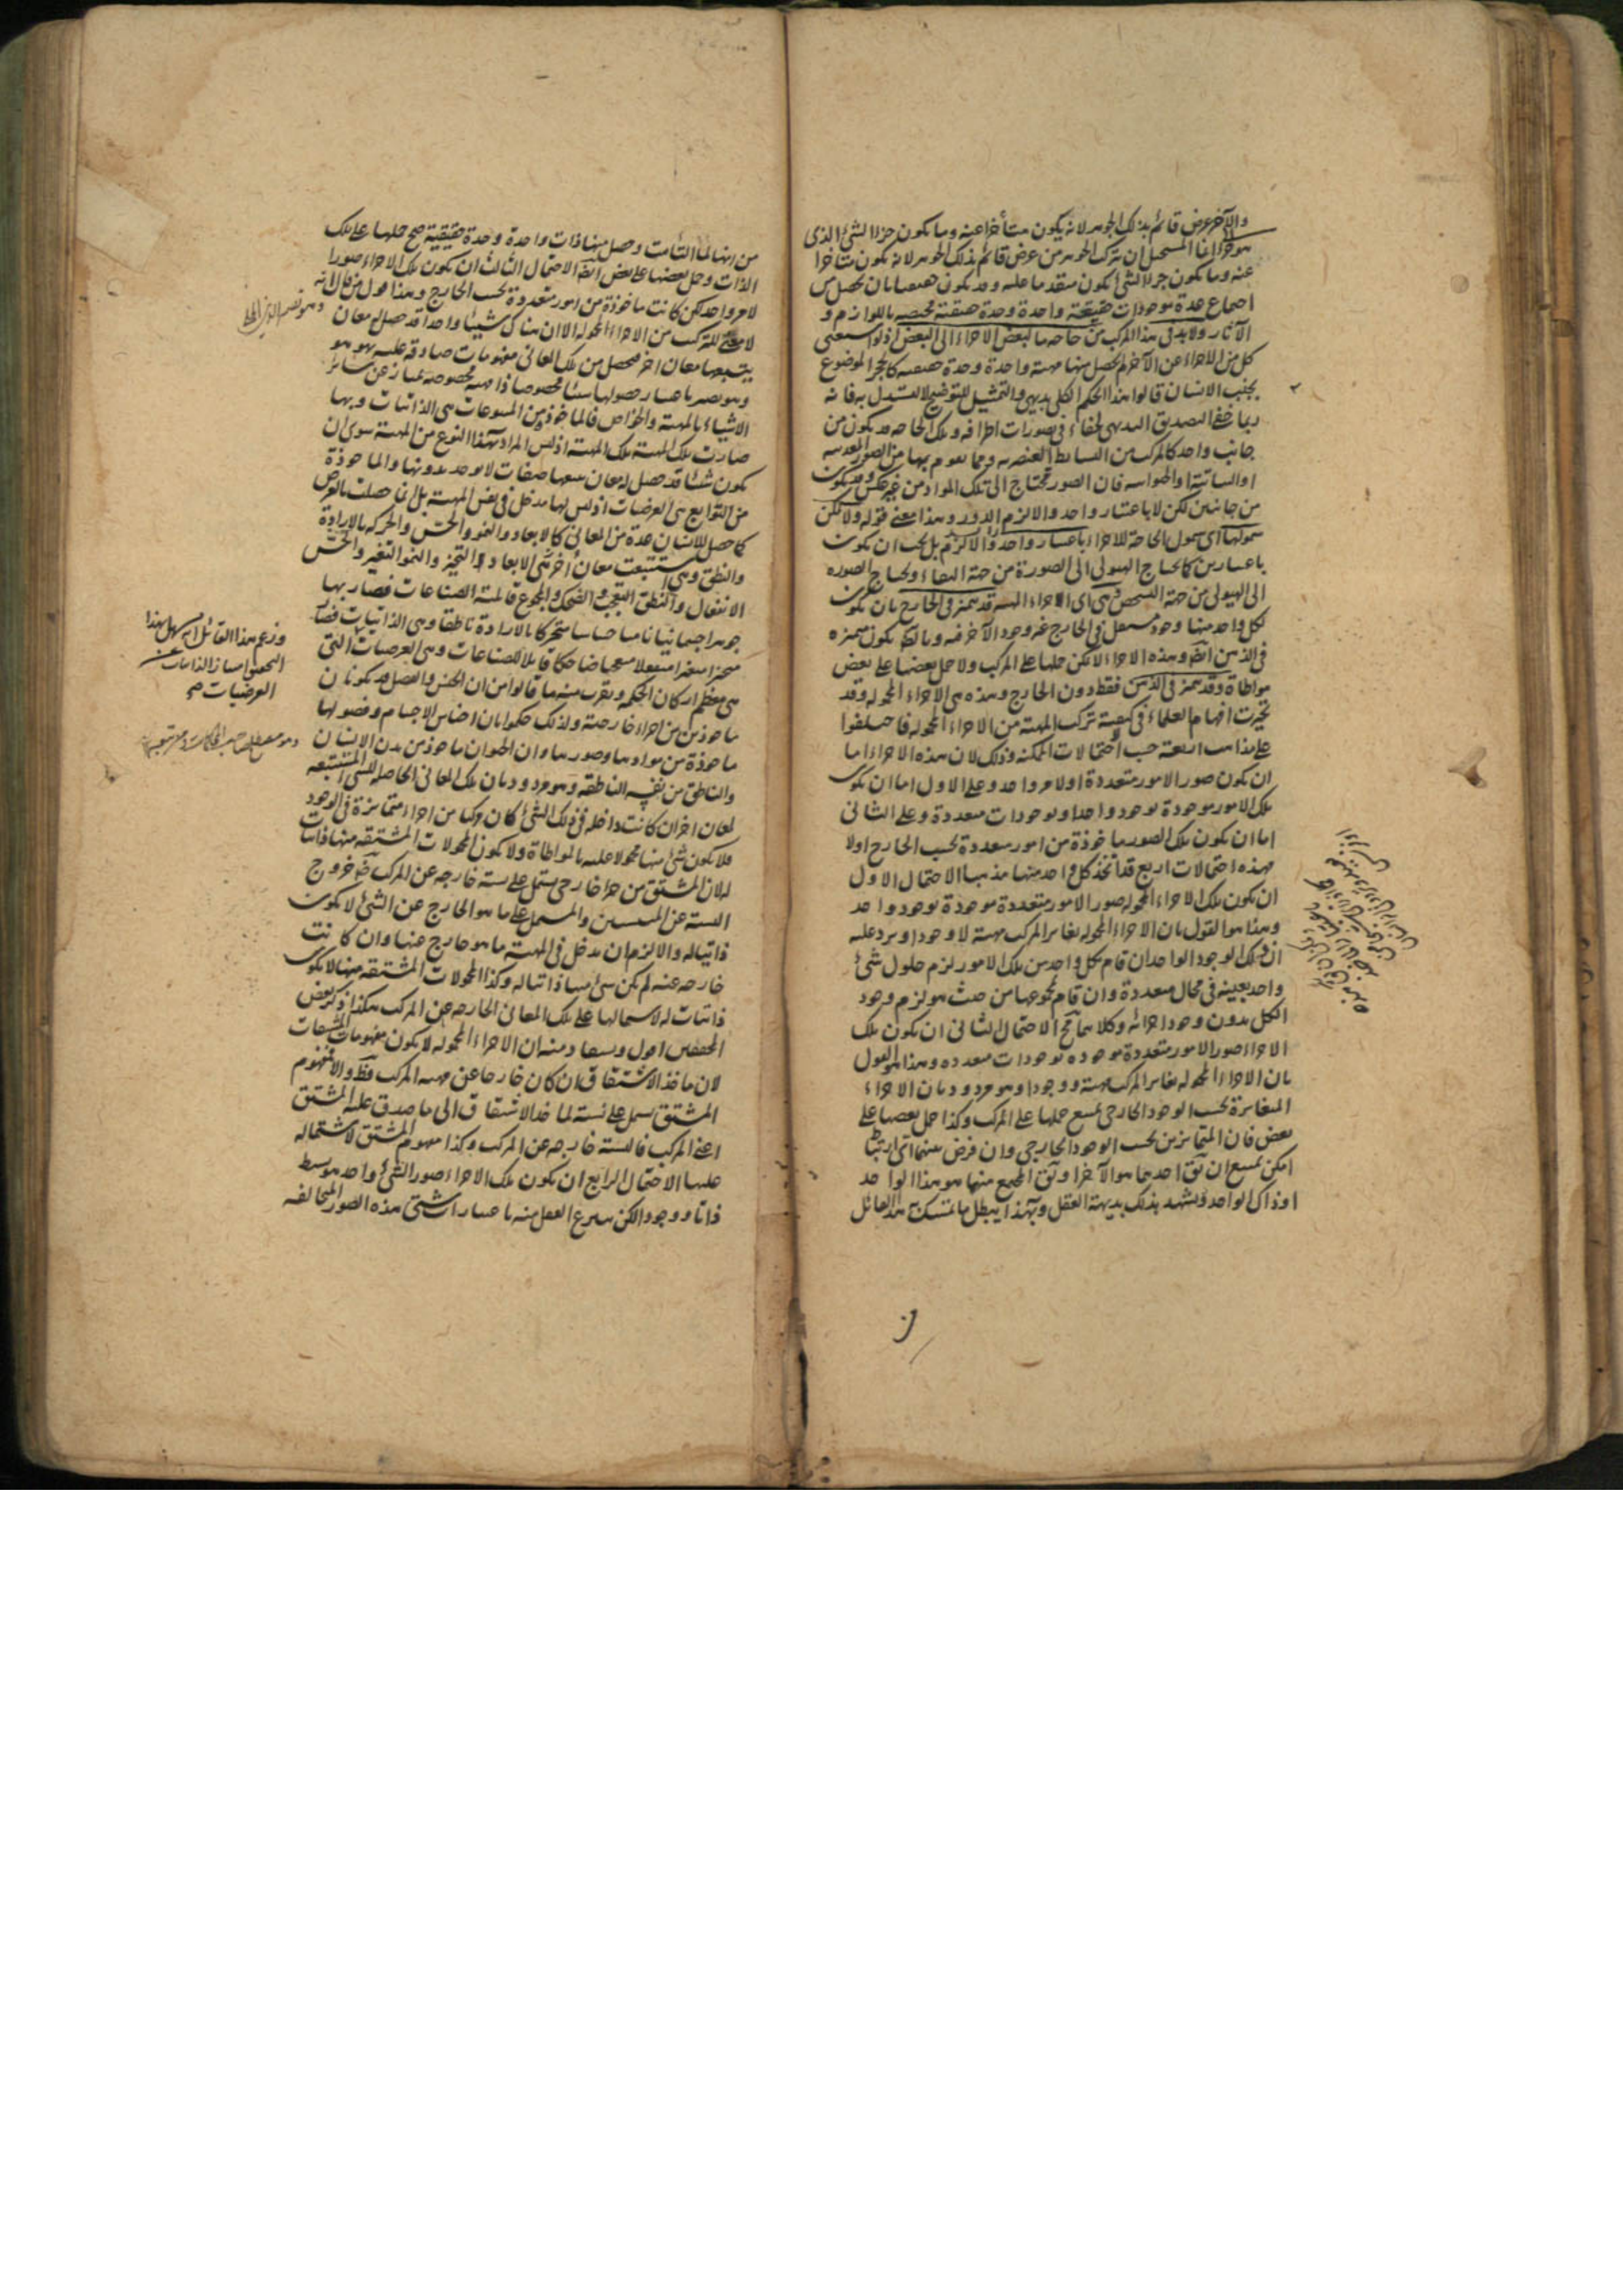 والآخر عرض قائم بذلك الجوهر لانه يكون متأخرا عنه وما يكون جزءا لشئ الذى
هو جزؤ انما المستحيل ان يتركب الجوهر من عرض قائم بذلك الجوهر لانه يكون متاخرا
عنه وما يكون جزءا لشئ يكون متقدما عليه وقد يكون حقيقيا بان يحصل من
اجتماع عدة موجودات حقيقة واحدة وحدة حقيقية مختصه باللوازم و
الآثار ولابد فى هذا المركب من حاجة ما لبعض الاجزاء الى البعض اذ لو استغنى
كل من الاجزاء عن الآخر لم يحصل منها مهية واحدة وحدة حقيقيه كالحجر الموضوع
بجنب الانسان قالوا هذا الحكم الكلى بديهى والتمثيل للتوضيح لا لاستدلال به فانه
ربما خفى التصديق البديهى لخفاء فى تصورات اطرافه وتلك الحاجه قد يكون من
جانب واحد كالمركب من البسايط العنصريه ومما يقوم بها من الصور المعدنيه
او النباتية او الحيوانيه فان الصور تحتاج الى تلك المواد من غير عكس وقد يكون
من جانبين لكن لا باعتبار واحد والا لزم الدور وهذا معنى قوله ولا يمكن
شمولها اى شمول الحاجة للاجزاء باعتبار واحد والا لزم بل يجب ان يكون
باعتبارين كما يحتاج الهيولى الى الصورة من جهة البقاء ويحتاج الصوره
الى الهيولى من جهة التشخص وهى اى الاجزاء المهية قد تتميز فى الخارج بان يكون
لكل واحد منها وجود مستقل فى الخارج غير وجود الآخر فيه وبالضرورة يكون متميزه
فى الذهن ايضا وهذه الاجزاء لا يمكن حملها على المركب ولا حمل بعضها على بعض
مواطاة وقد تتميز فى الذهن فقط دون الخارج وهذه هى الاجزاء المحموله وقد
تحيرت افهام العلماء فى كيفية تركب المهية من الاجزاء المحموله فاختلفوا
على مذاهب اربعة حسب الحتمالات الممكنه وذلك لان هذه الاجزاء اما
ان يكون صور الامور متعددة او لامر واحد وعلى الاول اما ان يكون
تلك الامور موجودة بوجود واحد او بوجودات متعددة وعلى الثانى
اما ان يكون تلك الصور ماخوذة من امور متعددة بحسب الخارج اولا
فهذه احتمالات اربع قد اتخذ كل واحد منها مذهبا الاحتمال الاول
ان يكون تلك الاجزاء المحموله صور الامور متعددة موجودة بوجود واحد
وهذا هو القول بان الاجزاء المحموله يغاير المركب مهية لا وجودا ويرد عليه
ان ذلك الوجود الواحد ان قام بكل واحد من تلك الامور لزم حلول شئ
واحد بعينه فى محال متعددة وان قام بمجموعها من حيث هو لزم وجود
الكل بدون وجود اجزائه وكلاهما مح الاحتمال الثانى ان يكون تلك
الاجزاء صور الامور متعددة موجوده بوجودات متعدده وهذا هو القول
بان الاجزاء المحموله يغاير المركب مهية ووجودا وهو مردود بان الاجزاء
المتغايرة بحسب الوجود الخارجى يمتنع حملها على المركب وكذا حمل بعضها على
بعض فان المتمايزين بحسب الوجود الخارجى وان فرض بينهما اى ارتباط
امكن يمتنع ان يقال احدهما هو الآخر او يقال المجتمع منهما هو هذا الواحد
او ذاك الواحد ويشهد بذلك بديهة العقل وبهذا يبطل ما تمسك به هذا القائل
من انها لما التأمت وحصل منها ذات واحدة وحدة حقيقية صح حملها على تلك
الذات وحمل بعضها على بعض ايضا الاحتمال الثالث ان يكون تلك الاجزاء صورا
لامر واحد لكن كانت ماخوذة من امور متعددة بحسب الخارج وهذا قول من قال انه
لا معنى للتركب من الاجزاء المحموله الا ان هناك شيئا واحدا قد حصل له معان
يتبعها معان اخر فيحصل من تلك المعانى مفهومات صادقة عليه بهو هو
وهو يصير باعتبار حصولها شيئا مخصوصا ذا مهية مخصوصة ممتاز عن سائر
الاشياء بالمهية والخواص فالماخوذ من المتبوعات هى الذاتيات وبها
صارت تلك المهية تلك المهية اذ ليس المراد بهذا النوع من المهية سوى ان
يكون شيئا قد حصل له معان يتبعها صفات لا يوجد بدونها والماخوذة
من التوابع هى العرضيات اذ ليس لها مدخل فى نفس المهية بل انما حصلت بالعرض
كما حصل للانسان عدة من المعانى كالابعاد والنمو والحس والحركه بالارادة
والنطق وهى استتبعت معان أخرى الابعاد التحيز والنمو التغير والحس
الانفعال والنطق التعجب والضحك والمجموع قابلية الصناعات فصار بها
جوهرا جسمانيا ناميا حساسا متحركا بالارادة ناطقا وهى الذاتيات فصار
متحيزا متغيرا منفعلا متعجبا ضاحكا قابلا للصناعات وهى العرضيات التى
هى معظم اركان الحكمه ويقرب منه ما قالوا من ان الجنس والفصل قد يكونان
ماخوذين من اجزاء خارجية ولذلك حكموا بان اجناس الاجسام وفصولها
ماخوذة من موادها وصورها وان الحيوان ماخوذ من بدن الانسان
والناطق من نفسه الناطقه وهو مردود بان تلك المعانى الحاصله للشى المستتبعه
لمعان اخر ان كانت داخله فى ذلك الشئ كان مركبا من اجزاء متمايزة فى الوجود
فلا يكون شئ منها محمولا عليه بالمواطاة ولا يكون المحمولات المشتقه منها ذاتيات
له لان المشتق من جزء خارجى يشتمل على نسبة خارجه عن المركب ضرورة خروج
النسبة عن المنتسبين والمشتمل على ما هو الخارج عن الشئ لا يكون
ذاتيا له والا لزم ان يدخل فى المهية ما هو خارج عنها وان كانت
خارجه عنه لم يكن شئ منها ذاتيا له وكذا المحمولات المشتقه منها لا يكون
ذاتيات له لاشتمالها على تلك المعانى الخارجه عن المركب هكذا ذكر بعض
المحققين اقول ويستفاد منه ان الاجزاء المحموله لا يكون مفهومات المشتقات
لان ماخذ الاشتقاق ان كان خارجا عن مهية المركب فظ والا فمفهوم
المشتق يشتمل على نسبة لماخذ الاشتقاق الى ما صدق عليه المشتق
اعنى المركب فالنسبة خارجه عن المركب وكذا مفهوم المشتق لاشتماله
عليها الاحتمال الرابع ان يكون تلك الاجزاء صور الشئ واحد هو بسيط
ذاتا ووجودا لكن ينتزع العقل منه باعتبارات شتى هذه الصور المتخالفه
وزعم هذا القائل انه يسهل بهذا
التحقيق امتياز الذاتيات عن
العرضيات صح